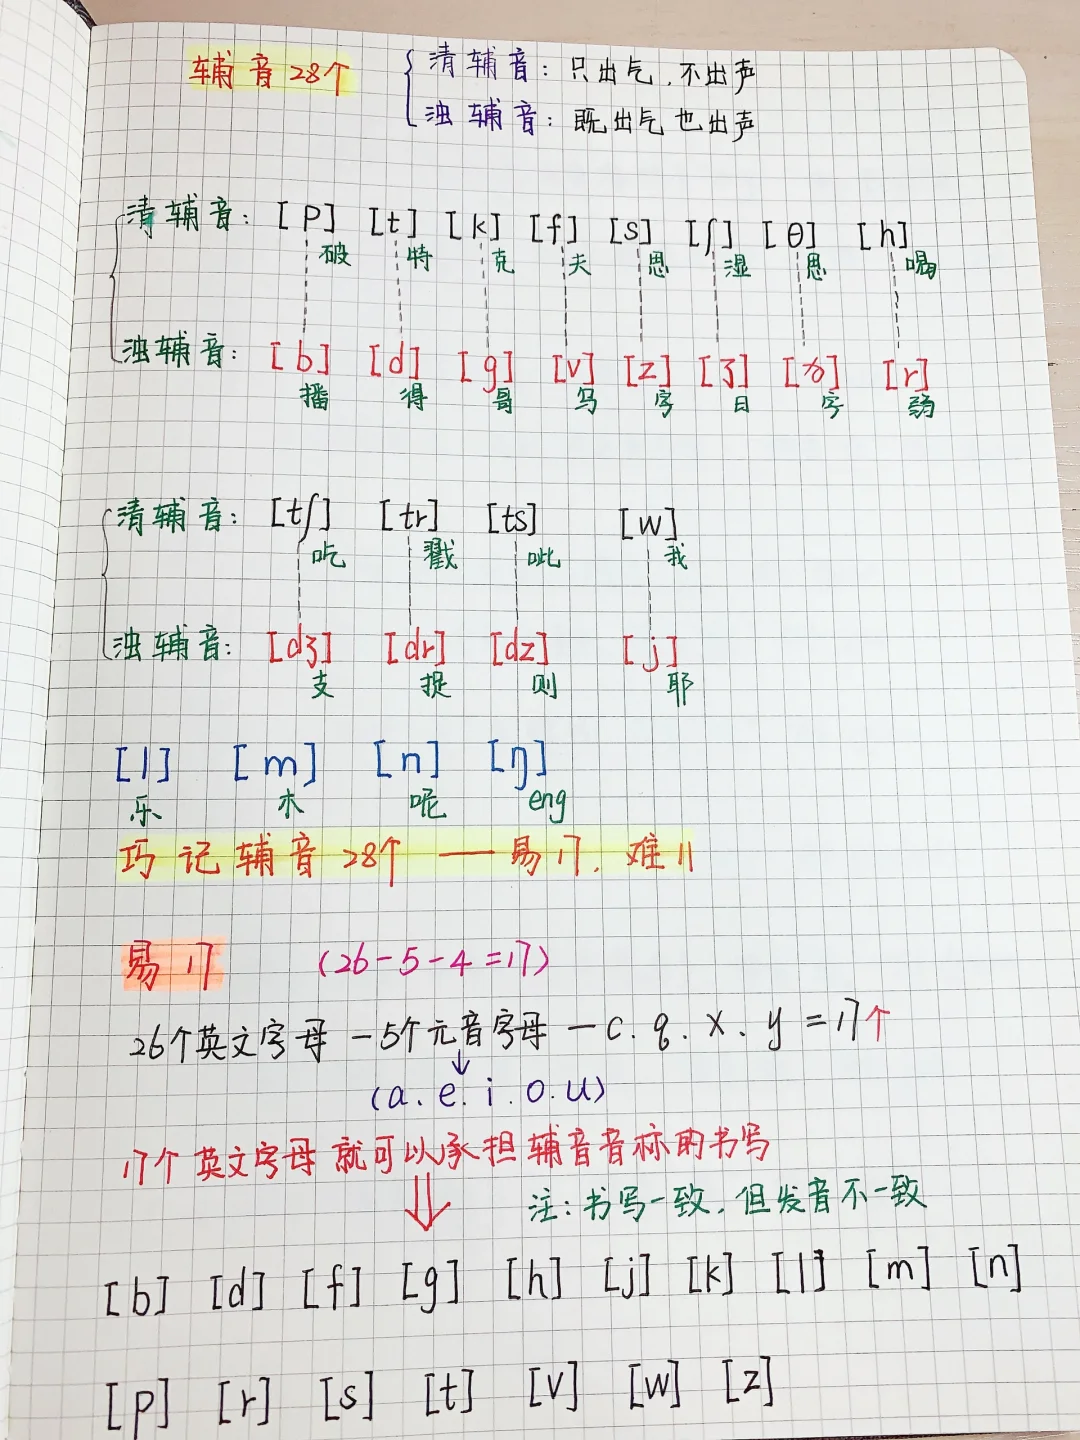 辅音28个
清辅音：只出气，不出声
浊辅音：既出气也出声
清辅音：[p] [t] [k] [f] [s] [ʃ] [θ] [h]
破 特 克 夫 思 湿 思 喝
浊辅音：[b] [d] [g] [v] [z] [ʒ] [ð] [r]
播 得 哥 写 字 日 字 弱
清辅音：[tʃ] [tr] [ts] [w]
吃 戳 呲 我
浊辅音：[dʒ] [dr] [dz] [j]
支 捉 则 耶
[l] [m] [n] [ŋ]
乐 木 呢 eng
巧记辅音28个 —— 易17，难11
易17 (26-5-4=17)
26个英文字母 -5个元音字母 -c.q.x.y =17个
(a.e.i.o.u)
17个英文字母就可以承担辅音音标的书写
注：书写一致，但发音不一致
[b] [d] [f] [g] [h] [j] [k] [l] [m] [n]
[p] [r] [s] [t] [v] [w] [z]